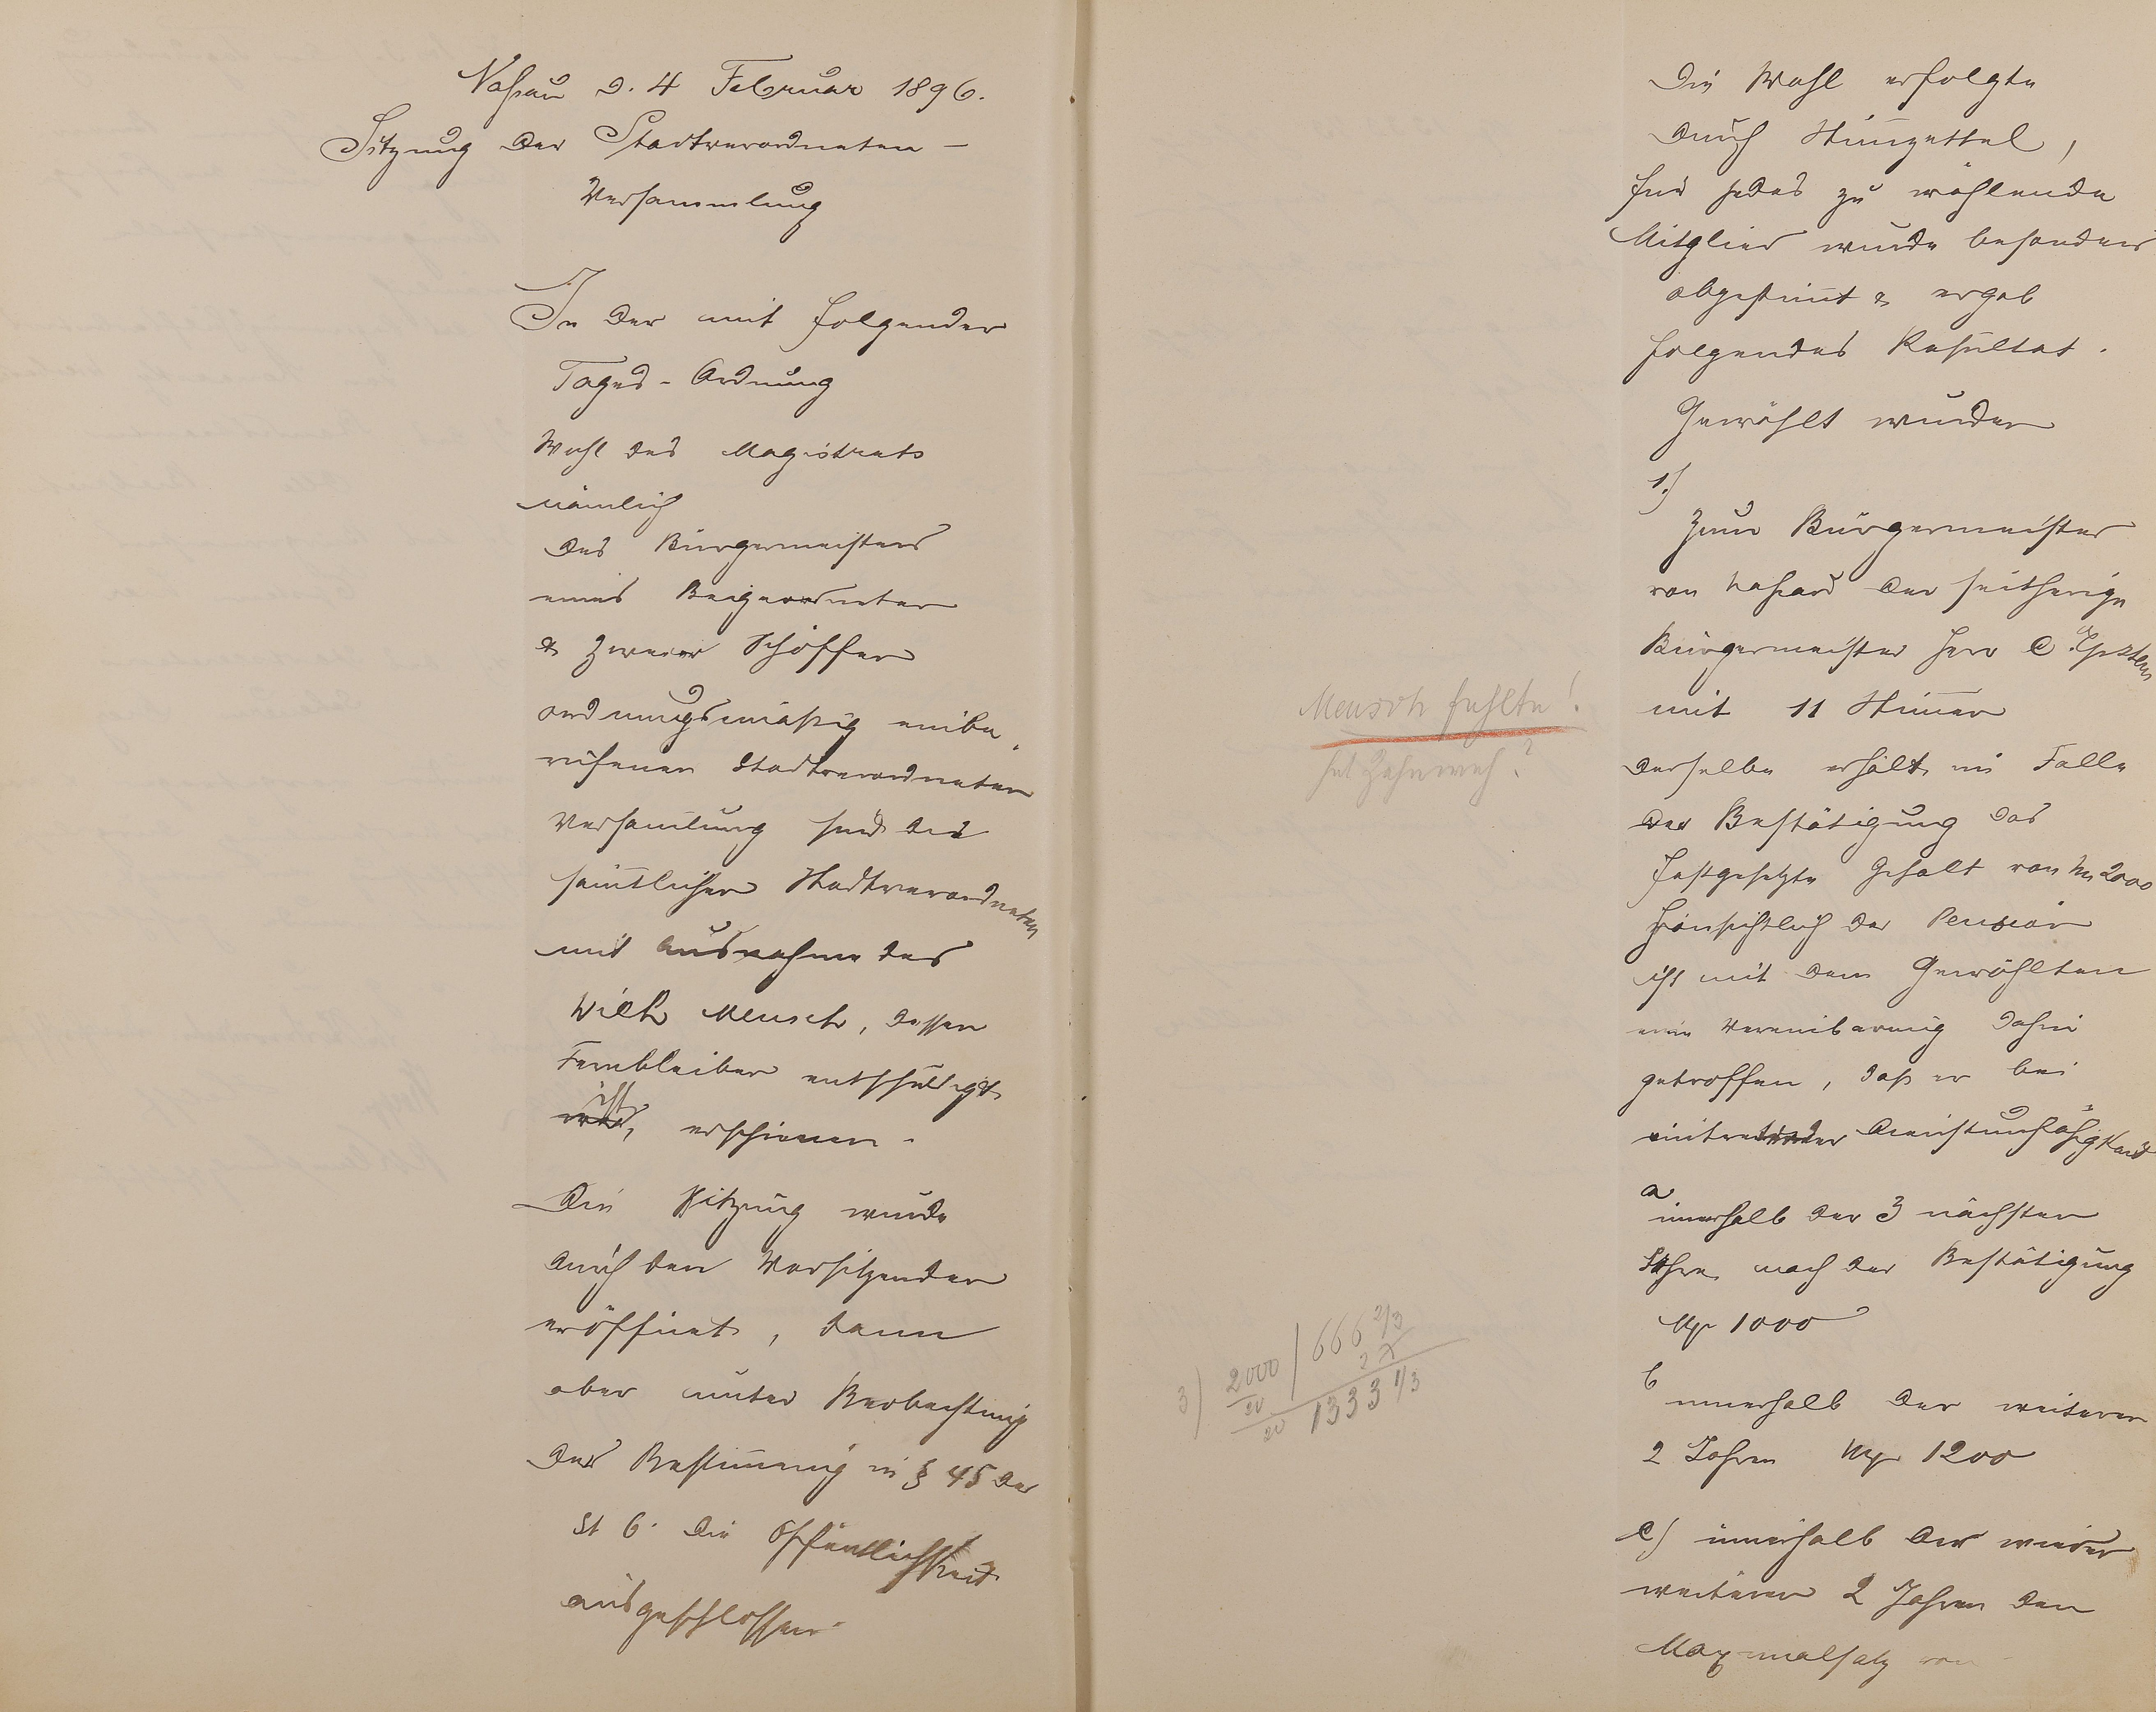 Nassau d. 4 Februar 1896.
Sitzung der Stadtverordneten-
Versammlung
In der mit folgender
Tages-Ordnung
Wahl des Magistrats
nämlich
des Bürgermeisters
eines Beigeordneten
& zweier Schöffen
ordnungsmäßig einbe
rufenen Stadtverordneten
Versam̄lung sind die
sam̄tlichen Stadtverordneten
mit Ausnahme des
Wilh Mensch, dessen
Fernbleiben entschuldigt
ist, erschienen.
Die Sitzung wurde
durch den Vorsitzenden
eröffnet, dann
aber unter Beobachtung
der Bestim̄ung in § 45 der
St O. die Öffentlichkeit
ausgeschlossen.
Die Wahl erfolgte
durch Stim̄zettel,
für jedes zu wählende
Mitglied wurde besonders
abgestim̄t & ergab
folgendes Resultat.
Gewählt wurden
1.)
Zum Bürgermeister
von Nassau der seitherige
Bürgermeister Herr C.
mit 11 Stim̄en
Derselbe erhält im Falle
der Bestätigung das
festgesetzte Gehalt von M 2000
Hinsichtlich der Pension
ist mit dem Gewählten
eine Vereinbarung dahin
getroffen, daß er bei
eintretender Dienstunfähigkeit
a
innerhalb der 3 nächsten
Jahre nach der Bestätigung
M 1000
b
innerhalb der weiteren
2 Jahren M 1200
c) innerhalb der wieder
weiteren 2 Jahren den
Maximalsatz von
Mensch fehlte!
hat Zahnweh?
3) 2000 | 666 2/3
20 2 x
20 1333 1/3